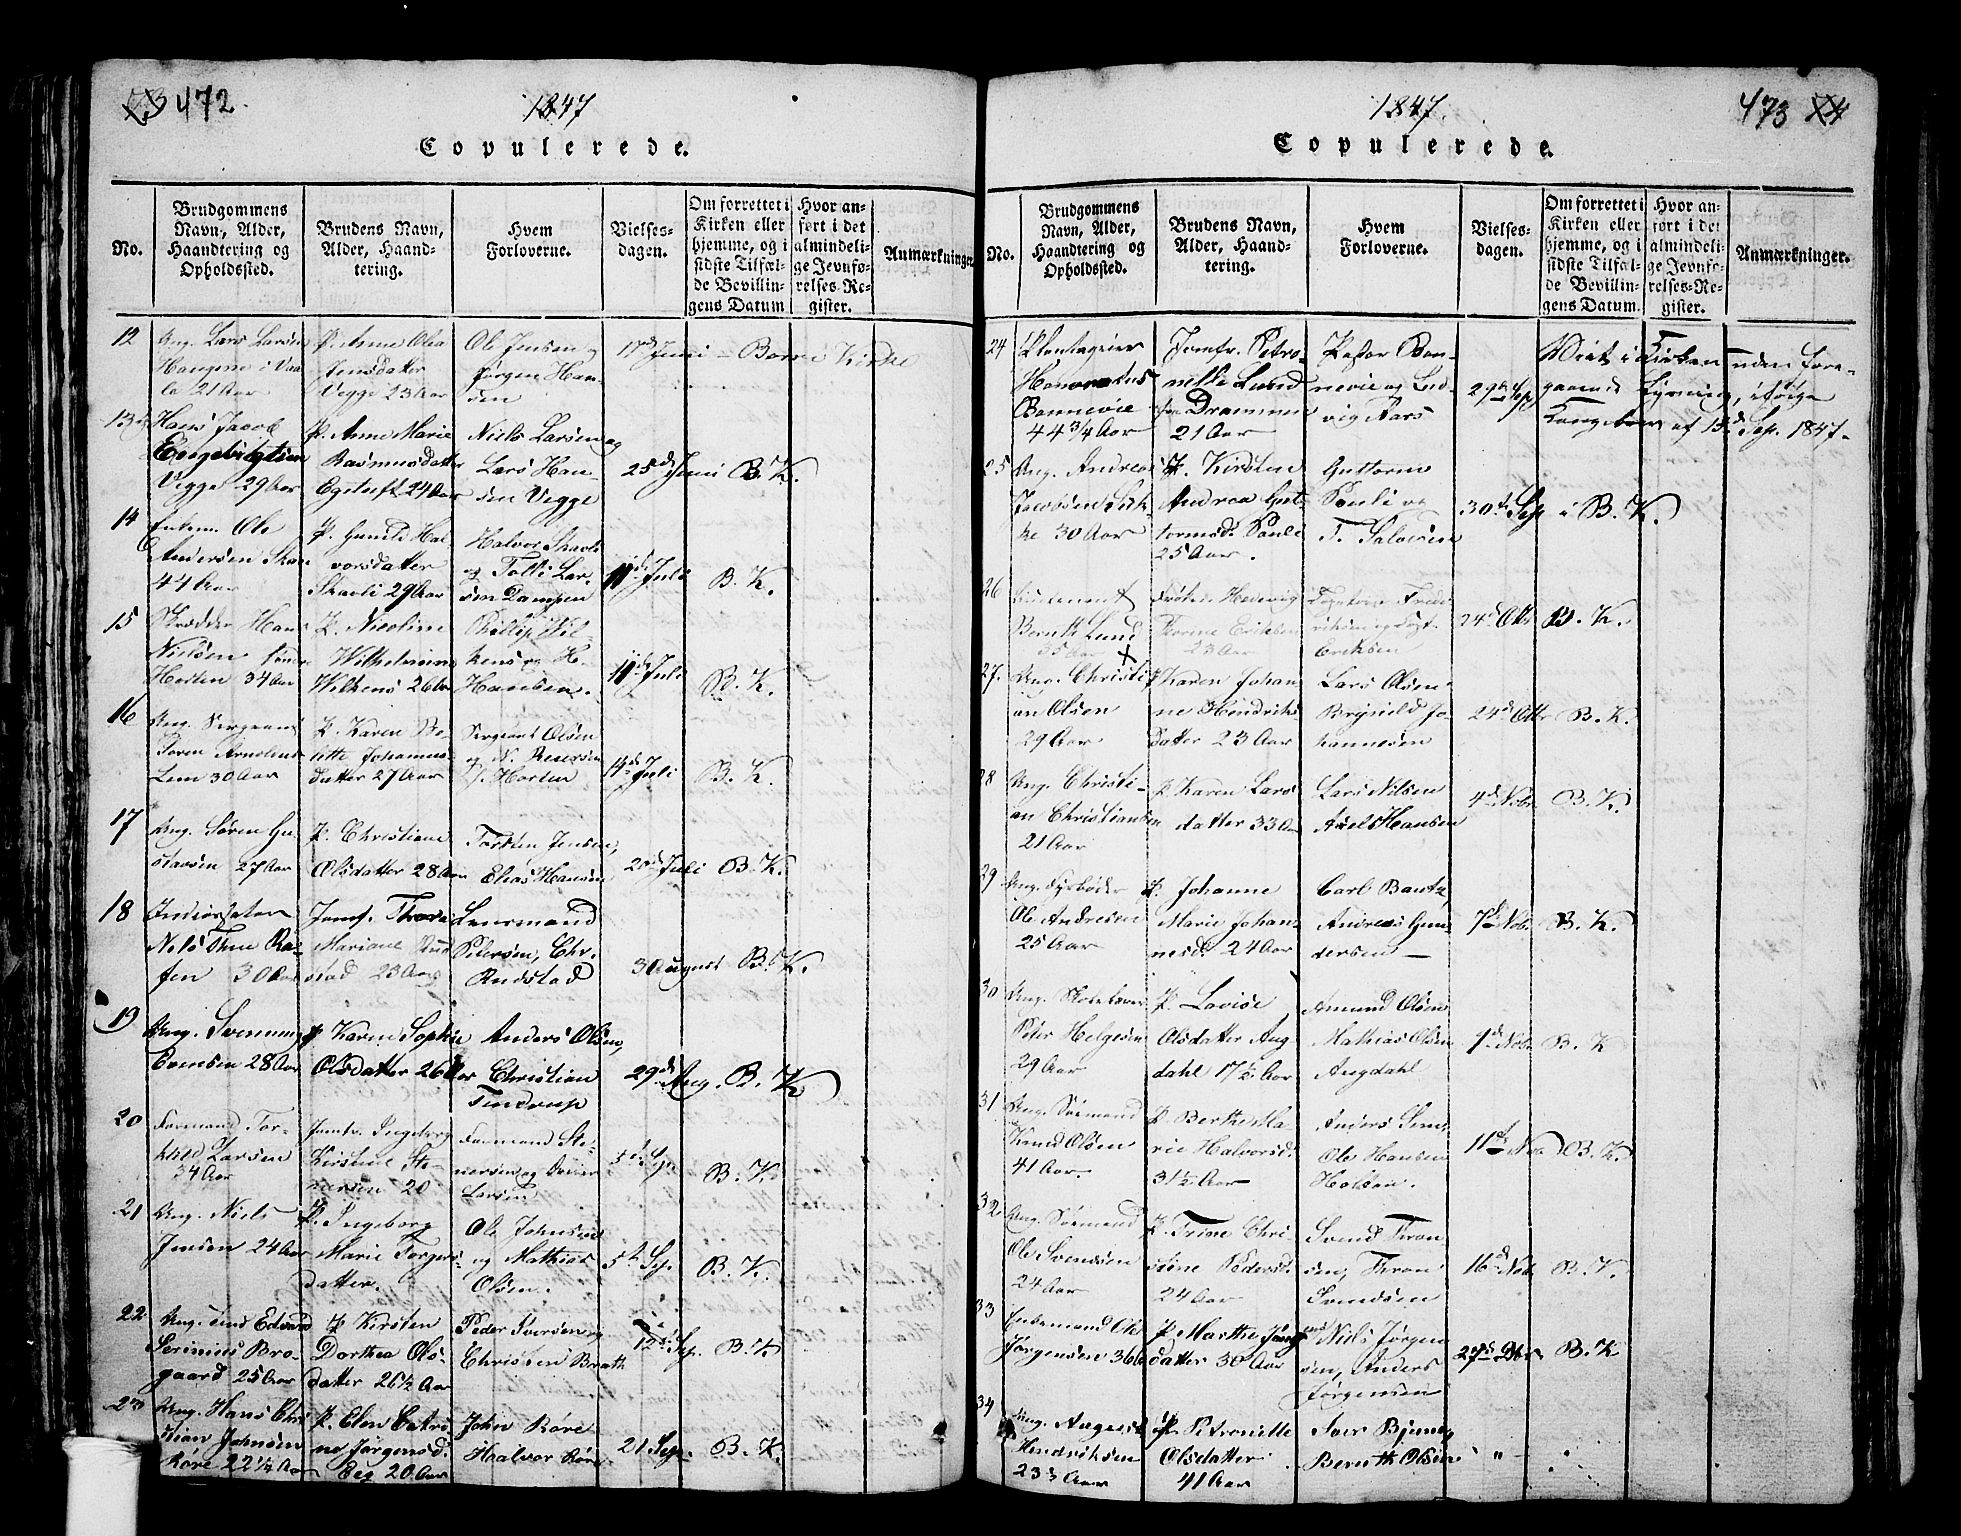 472.
1847
Copulerede.
No.
Brudgommens
Navn, Alder,
Haandtering og
Opholdssted.
Brudens Navn,
Alder, Haand-
tering.
Hvem
Forloverne.
Vielses-
dagen.
Om forrettet i
Kirken eller
hjemme, og i
sidste Tilfæl-
de Bevillin-
gens Datum
Hvor an-
ført i det
almindeli-
ge Jevnfø-
relses-Re-
gister.
Anmærkninger.
12
Ung. Lars Larsen
21 Aar
P. Anne
Jensdatter
Vegge 23 Aar
Ole Jensen og
Jørgen Han-
sen
17d Juni - Borre Kirke
13
Hans Jacob
Engebrigtsen
Vegge 29 Aar
P. Anne Marie
Rasmusdatter
24 Aar
Niels Larsen og
Lars Han-
sen Vegge
25d Juni B. K.
14
Enkem. Ole
Andersen
44 Aar
P. Gunild Hal-
vorsdatter
Skavli 29 Aar
Halvor Skavli
og Tolli Lar-
sen Dampen
11d Juli B. K.
15
Skrædder Hans
Nielsen
Horten 34 Aar
P. Nicoline
Wilhelmine
Wilkens 26 Aar
Phillip Wil-
kens og H.
Hansen.
11d Juli B. K.
16
Ung. Sergeant
Søren
30 Aar
P. Karen
Johannes-
datter 27 Aar
Sergeant Olsen
og N.
Horten
14d Juli B. K.
17
Ung. Søren Gu-
stavsen 27 Aar
P. Christiane
Olsdatter 28 Aar
Torsten Jensen,
Elias Hansen
20d Juli B. K.
18
Nils Thue Ra-
fen 30 Aar
Jomf. Thora
Mariane Rud-
stad 23 Aar
Lensmand
Petersen, Chr.
Rudstad
3 August B. K.
19
Ung. Svenning
Evensen 28 Aar
P. Karen Sophie
Olsdatter 26 Aar
Anders Olsen,
Christian
Tendrup
29d Aug. B. K.
20
Formand Tor-
kild Larsen
34 Aar
Jomfr. Ingeborg
Kirstine Ste-
nersen 20
Formand Ste-
nersen og
Larsen
5d Sp. B. K.
21
Ung. Niels
Jensen 24 Aar
P. Ingeborg
Marie Torgers-
datter.
Ole Johnsen
og Mathias
Olsen.
5d Sep. B. K.
22
Ung. Edvard
Serinius Bro-
gaard 25 Aar
P. Kirsten
Dorthea Ols-
datter 26½ Aar
Peder Iversen og
Christen Brath
12d Sep. B. K.
23
Ung. Hans Chri-
stian Johnsen
Røre 22¼ Aar
P. Elen Catri-
ne Jørgensd.
Eeg 20 Aar
John Røre
Haalvor Røre
21 Sep. B. K.
1847.
473
Copulerede.
No.
Brudgommens
Navn, Alder,
Haandtering og
Opholdssted.
Brudens Navn,
Alder, Haand-
tering.
Hvem
Forloverne.
Vielses-
dagen.
Om forrettet i
Kirken eller
hjemme, og i
sidste Tilfæl-
de Bevillin-
gens Datum.
Hvor an-
ført i det
almindeli-
ge Jevnfø-
relses-Re-
gister.
Anmærkninger.
24
Honoratus
Bonnevie
44 3/4 Aar
Jomfr. Petro-
nelle Lund
fra Drammen
21 Aar
Pastor Bon-
nevie og Lud-
vig Aars
29d Sep
Viet i Kirken uden fore-
gaaende Lysning, ifølge
Kongebrev af 13d Sep. 1847.
25
Ung. Andreas
Jacobsen
30 Aar
P. Kirsten
Andrea Gut-
tormsd. Pauli
25 Aar.
Guttorm
Pauli og
T. Salvesen
30d Sep i B. K.
26
Lieutenant
Bernth Lund
35 Aar
Frøken Hedevig
Eriksen
23 Aar
Eriksen
24d Oktr B. K.
27.
Ung. Christi-
an Olsen
29 Aar
P. Karen Johan-
ne Hendriks-
datter 23 Aar
Lars Olsen
Brynild Jo-
hannesen
24d Oktr B. K.
28
Ung. Christi-
an Christiansen
21 Aar
P. Karen Lars-
datter 33 Aar
Lars Nilsen
Axel Hansen
4d Nobr. B. K.
29
Ung. Fyrbøder
Ole Andresen
25 Aar
P. Johanne
Marie Johan-
nesd. 24 Aar
Carl Bautz,
Andreas Gun-
dersen
7d Nobr. B. K.
30
Ung. Skolelærer
Peter Helgesen
29 Aar
P. Lovise
Olsdatter Aug-
dahl 17½ Aar
Amund Olsen
Mathias Olsen
Augdahl
9d Nobr B. K
31
Ung. Sømand
Knud Olsen
41 Aar
P. Berthe Ma-
rie Halvorsd.
31½ Aar
Anders
Ole Hansen
Holsen.
11d Nov B. K.
32
Ung. Sømand
Ole Svendsen
24 Aar
P. Trine Chri-
stine Pedersd.
24 Aar
Svend Thron-
sen, Thron
Svendsen
16d Nob. B. K.
33
Enkemand Ole
Jørgensen 36
P. Marthe
datter 30 Aar
Niels Jørgen-
sen, Anders
Jørgensen
27d B. K
34
Ung. August
Hendriksen
23 3/4 Aar
P. Petronille
Olsdatter
41 Aar
Iver Bjerneg
Bernth Olsen